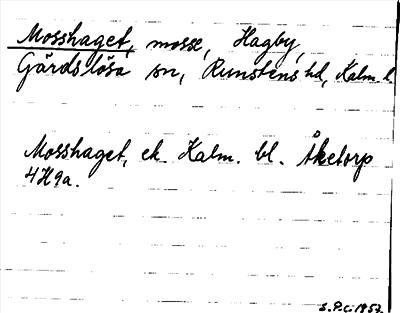 Mosshaget, mosse, Hagby,
Gårdslösa sn, Runstens hd, Kalm. l.
Mosshaget, ek. Kalm. bl. Åketorp
4H9a.
S.P.C. 1957.